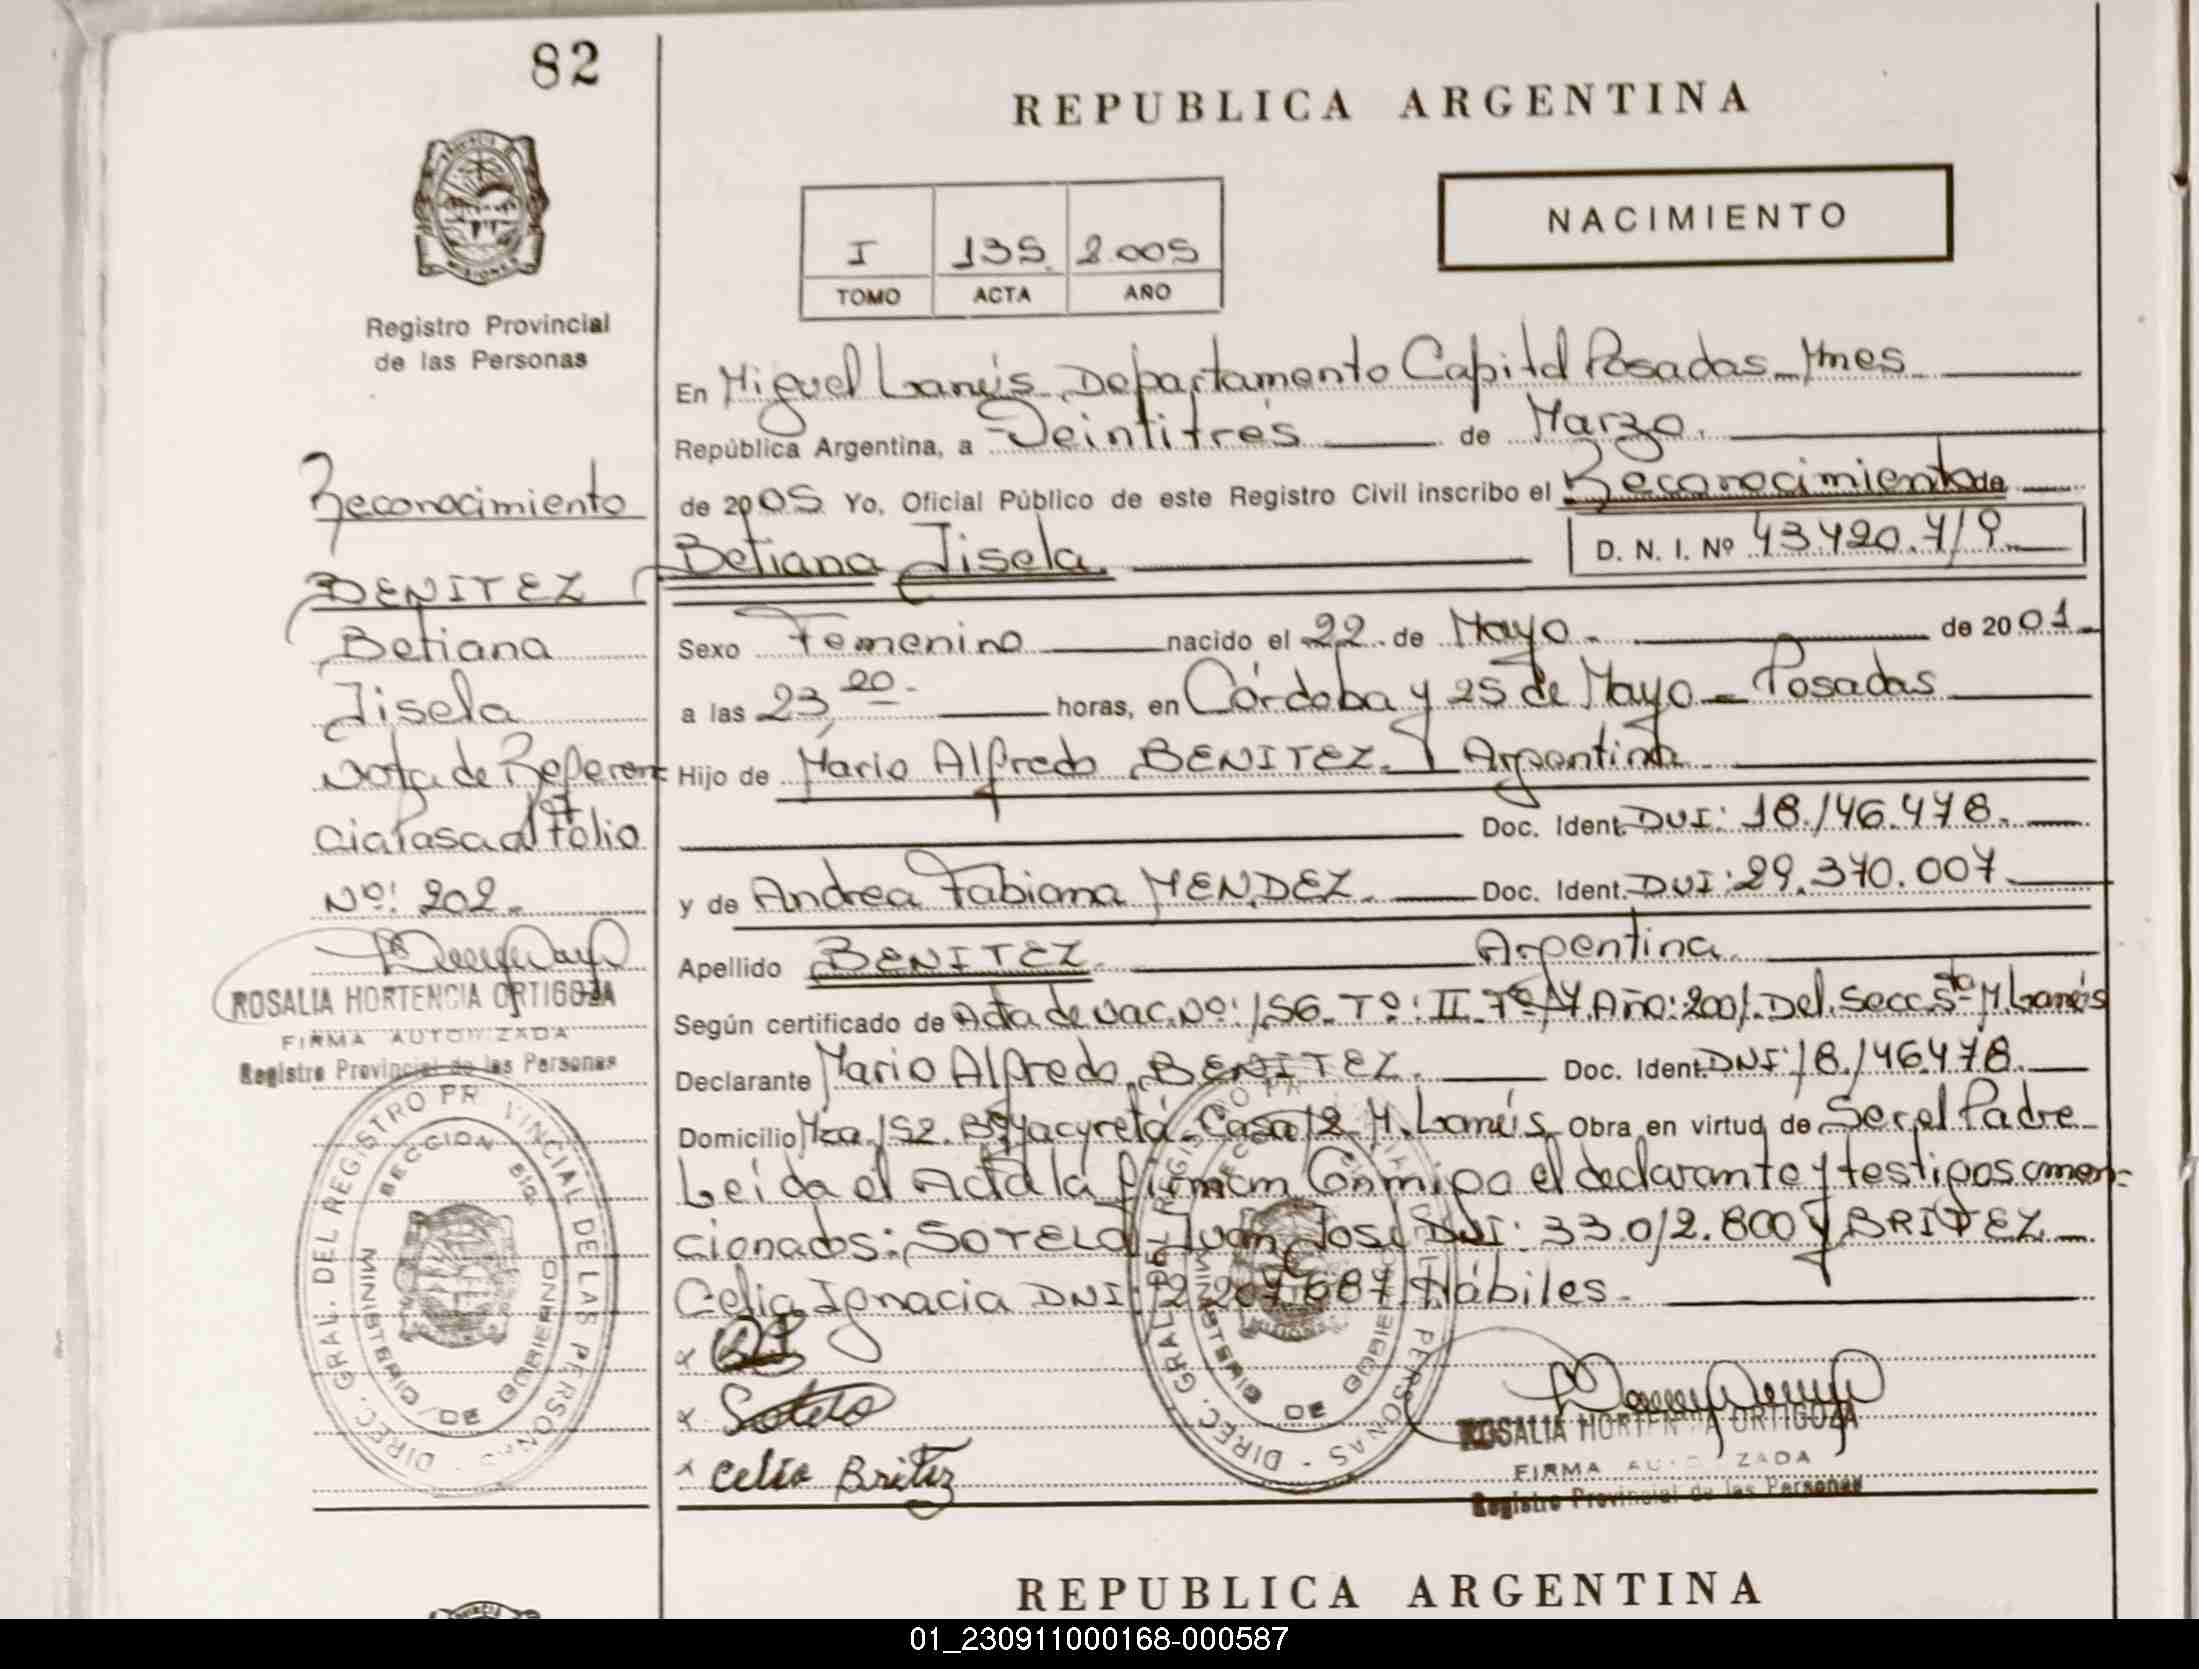 82
REPUBLICA ARGENTINA
NACIMIENTO
I 135 2.005
TOMO ACTA AÑO
Registro Provincial
de las Personas
En Miguel Lanús Departamento Capital Posadas - Mnes
República Argentina, a Veintitrés de Marzo.
de 2005 Yo, Oficial Público de este Registro Civil inscribo el Reconocimiento de
Betiana Jisela. D. N. I. Nº 43.420.719
Sexo Femenino nacido el 22 de Mayo de 2001
a las 23,20 horas, en Córdoba y 25 de Mayo - Posadas
Hijo de Mario Alfredo BENITEZ. Argentina
Doc. Ident. DNI: 18.146.478.
y de Andrea Fabiana MENDEZ. Doc. Ident. DNI: 29.370.007
Apellido BENITEZ Argentina.
Según certificado de Acta de Nac. Nº: 156 Tº: II Fº 14 Año: 2001. Del. Secc. 5ta M. Lanús
Declarante Mario Alfredo BENITEZ. Doc. Ident. DNI: 18.146.478.
Domicilio Mza. 152. Bº Yacyretá. Casa 12 M. Lanús. Obra en virtud de Ser el Padre
Leída el Acta la firman Conmigo el declarante y testigos amen-
cionados: SOTELO Juan José DNI: 33.012.800 y BRITEZ
Celia Ignacia DNI: 12.207.687 Hábiles.
x
x Sotelo
x Celia Britez
ROSALIA HORTENCIA ORTIGOZA
FIRMA AUTORIZADA
Registro Provincial de las Personas
DIREC. GRAL. DEL REGISTRO PROVINCIAL DE LAS PERSONAS
MINISTERIO DE GOBIERNO
Reconocimiento
BENITEZ
Betiana
Jisela
Nota de Referen
cia Pasa al Folio
Nº: 202.
ROSALIA HORTENCIA ORTIGOZA
FIRMA AUTORIZADA
Registro Provincial de las Personas
DIREC. GRAL. DEL REGISTRO PROVINCIAL DE LAS PERSONAS
MINISTERIO DE GOBIERNO
REPUBLICA ARGENTINA
01_230911000168-000587